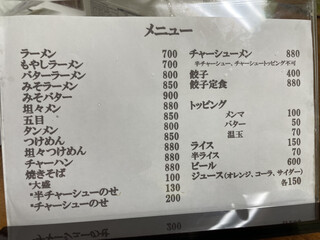 メニュー
ラーメン 700
もやしラーメン 700
バターラーメン 750
みそラーメン 850
みそバター 900
坦々メン 880
五目 800
タンメン 800
つけめん 800
坦々つけめん 880
チャーハン 800
焼きそば 800
*大盛 100
*半チャーシューのせ 130
*チャーシューのせ 200
チャーシューメン 880
半チャーシュー、チャーシュートッピング不可
餃子 400
餃子定食 880
トッピング
メンマ 100
バター 50
温玉 70
ライス 150
半ライス 70
ビール 600
ジュース(オレンジ、コーラ、サイダー)
各150